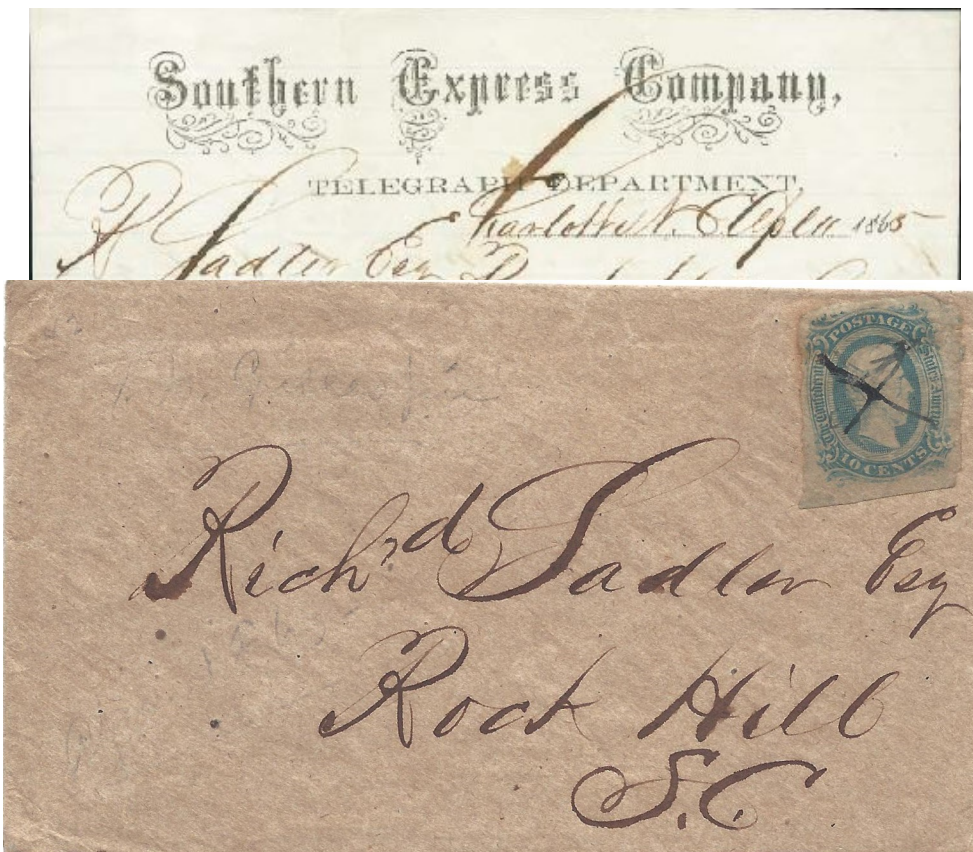 Southern Express Company,
TELEGRAPH DEPARTMENT,
Charlotte N. C. 1865
R Sadler Esq
POSTAGE
The Confederate States America
10 CENTS
Rich.d Sadler Esq
Rock Hill
S.C.